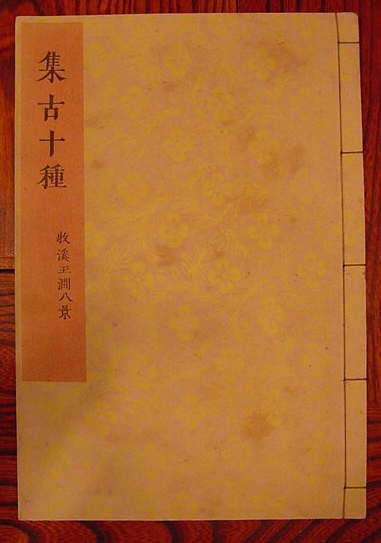 集古十種
牧溪玉澗八景